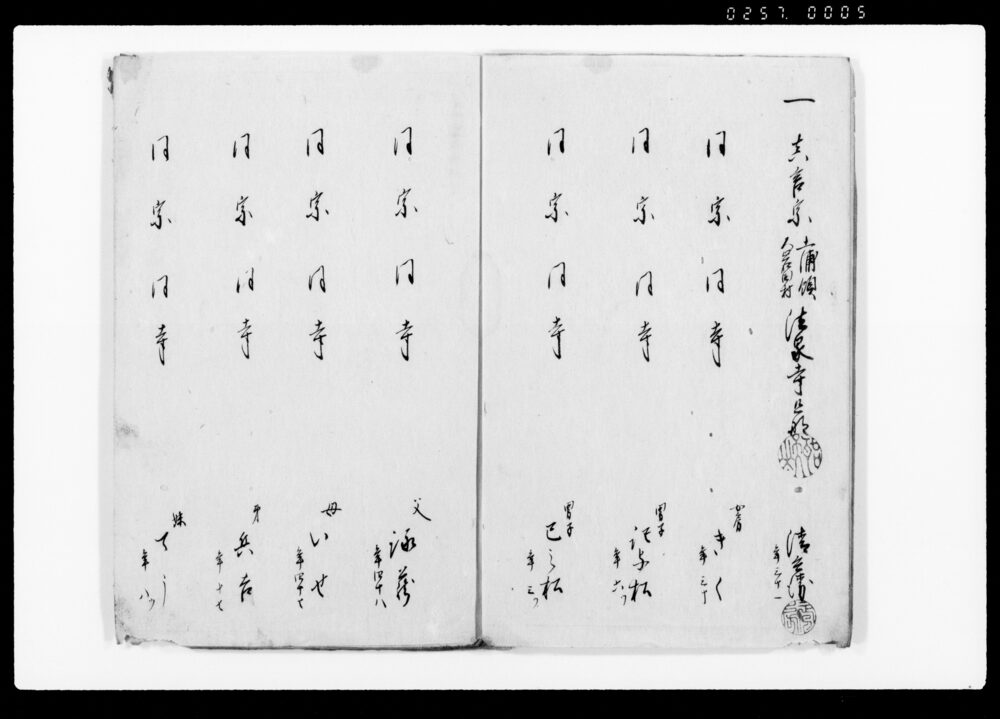 0257. 0005
一 真言宗 土浦領
法泉寺
年三十一
同宗 同寺 女房 きく 年三十
同宗 同寺 男子 年六ツ
同宗 同寺 男子 巳之松 年三ツ
同宗 同寺 父 年四十八
同宗 同寺 母 いせ 年四十七
同宗 同寺 弟 兵吉 年十七
同宗 同寺 妹 てう 年八ツ